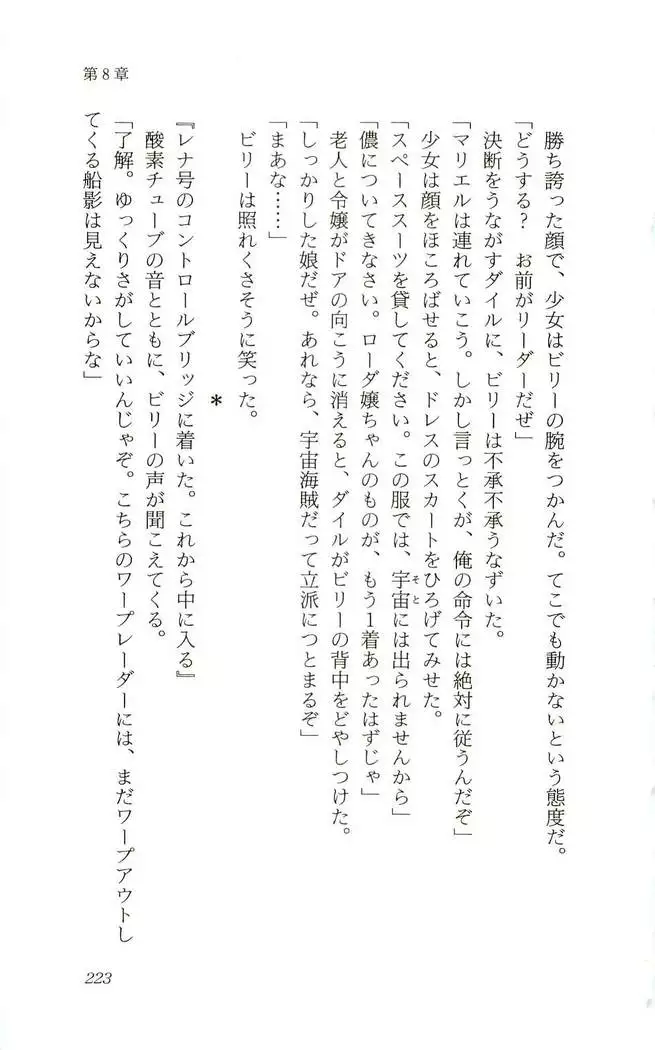 第8章
勝ち誇った顔で、少女はビリーの腕をつかんだ。てこでも動かないという態度だ。
「どうする？　お前がリーダーだぜ」
決断をうながすダイルに、ビリーは不承不承うなずいた。
「マリエルは連れていこう。しかし言っとくが、俺の命令には絶対に従うんだぞ」
少女は顔をほころばせると、ドレスのスカートをひろげてみせた。
「スペーススーツを貸してください。この服では、宇宙には出られませんから」
そと
「儂についてきなさい。ローダ嬢ちゃんのものが、もう１着あったはずじゃ」
老人と令嬢がドアの向こうに消えると、ダイルがビリーの背中をどやしつけた。
「しっかりした娘だぜ。あれなら、宇宙海賊だって立派につとまるぞ」
「まあな……」
ビリーは照れくさそうに笑った。
*
『レナ号のコントロールブリッジに着いた。これから中に入る』
酸素チューブの音とともに、ビリーの声が聞こえてくる。
「了解。ゆっくりさがしていいんじゃぞ。こちらのワープレーダーには、まだワープアウトし
てくる船影は見えないからな」
223